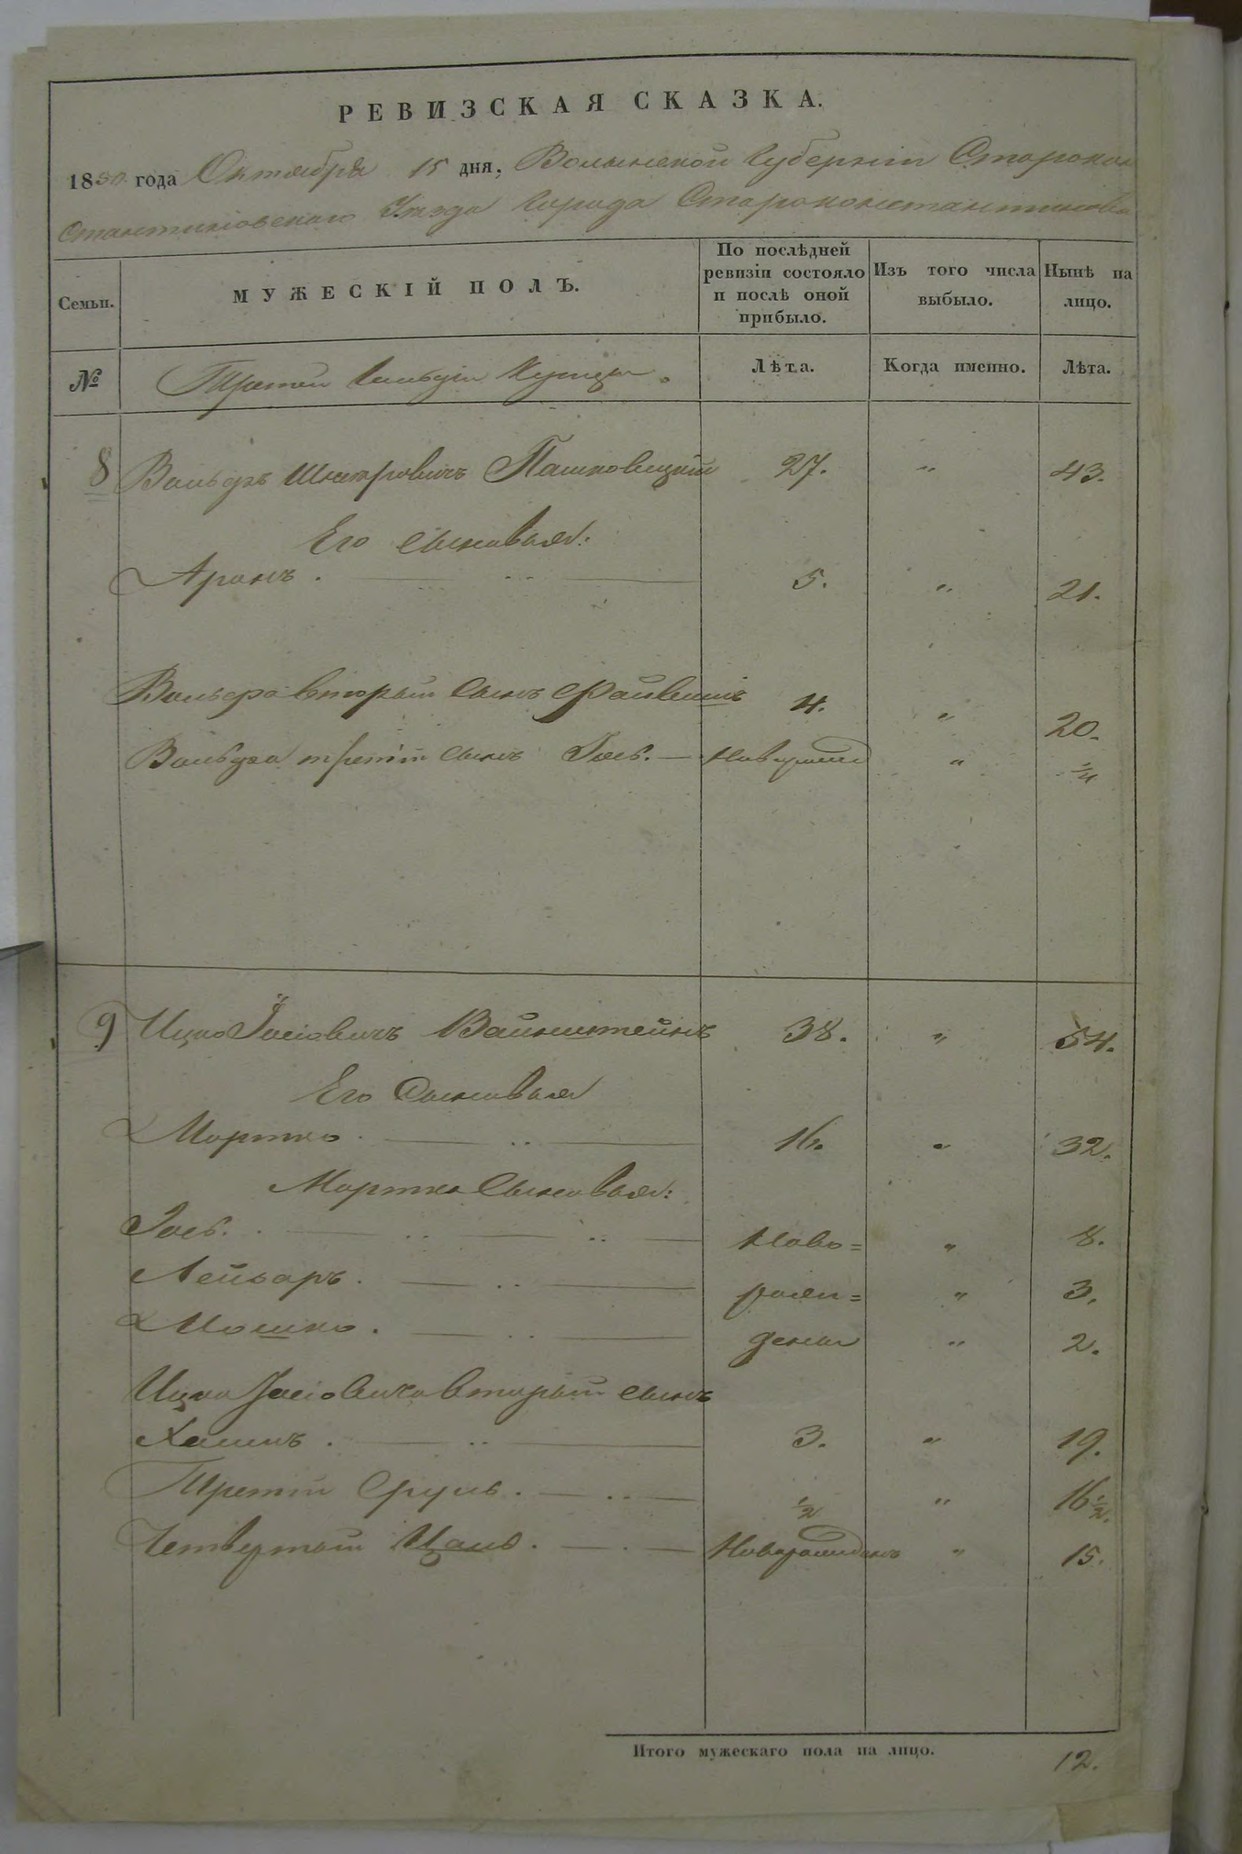 РЕВИЗСКАЯ СКАЗКА.
1850 года Октября 15 дня, Волынской Губернии Старокон
стантиновского Уезда Города Староконстантинова
Семьи.
МУЖЕСКІЙ ПОЛЪ.
По послѣдней ревизіи состояло и послѣ оной прибыло.
Изъ того числа выбыло.
Нынѣ на лицо.
№
Третей Гильдіи Купцы.
Лѣта.
Когда именно.
Лѣта.
8 Вольфъ Пашковецкій 27. " 43.
Его сыновья:
Аронъ. 5. " 21.
Вольфа вторый сынъ Файвишъ 4. " 20.
Вольфа третій сынъ Іось. Новорожд " ¼
9 Ицко Іосіовичъ Вайнштейнъ 38. " 54.
Его Сыновья
Мортко. 16. " 32.
Мортка Сыновья:
Іось. Ново= " 8.
Лейзаръ. рожд= " 3.
Мошко. дены " 2.
Ицка Іосіовича вторый сынъ
Хаимъ. 3. " 19.
Третій Сруль. ½ " 16½.
Четвертый Цаль. Новорожденъ " 15.
Итого мужескаго пола на лицо. 12.